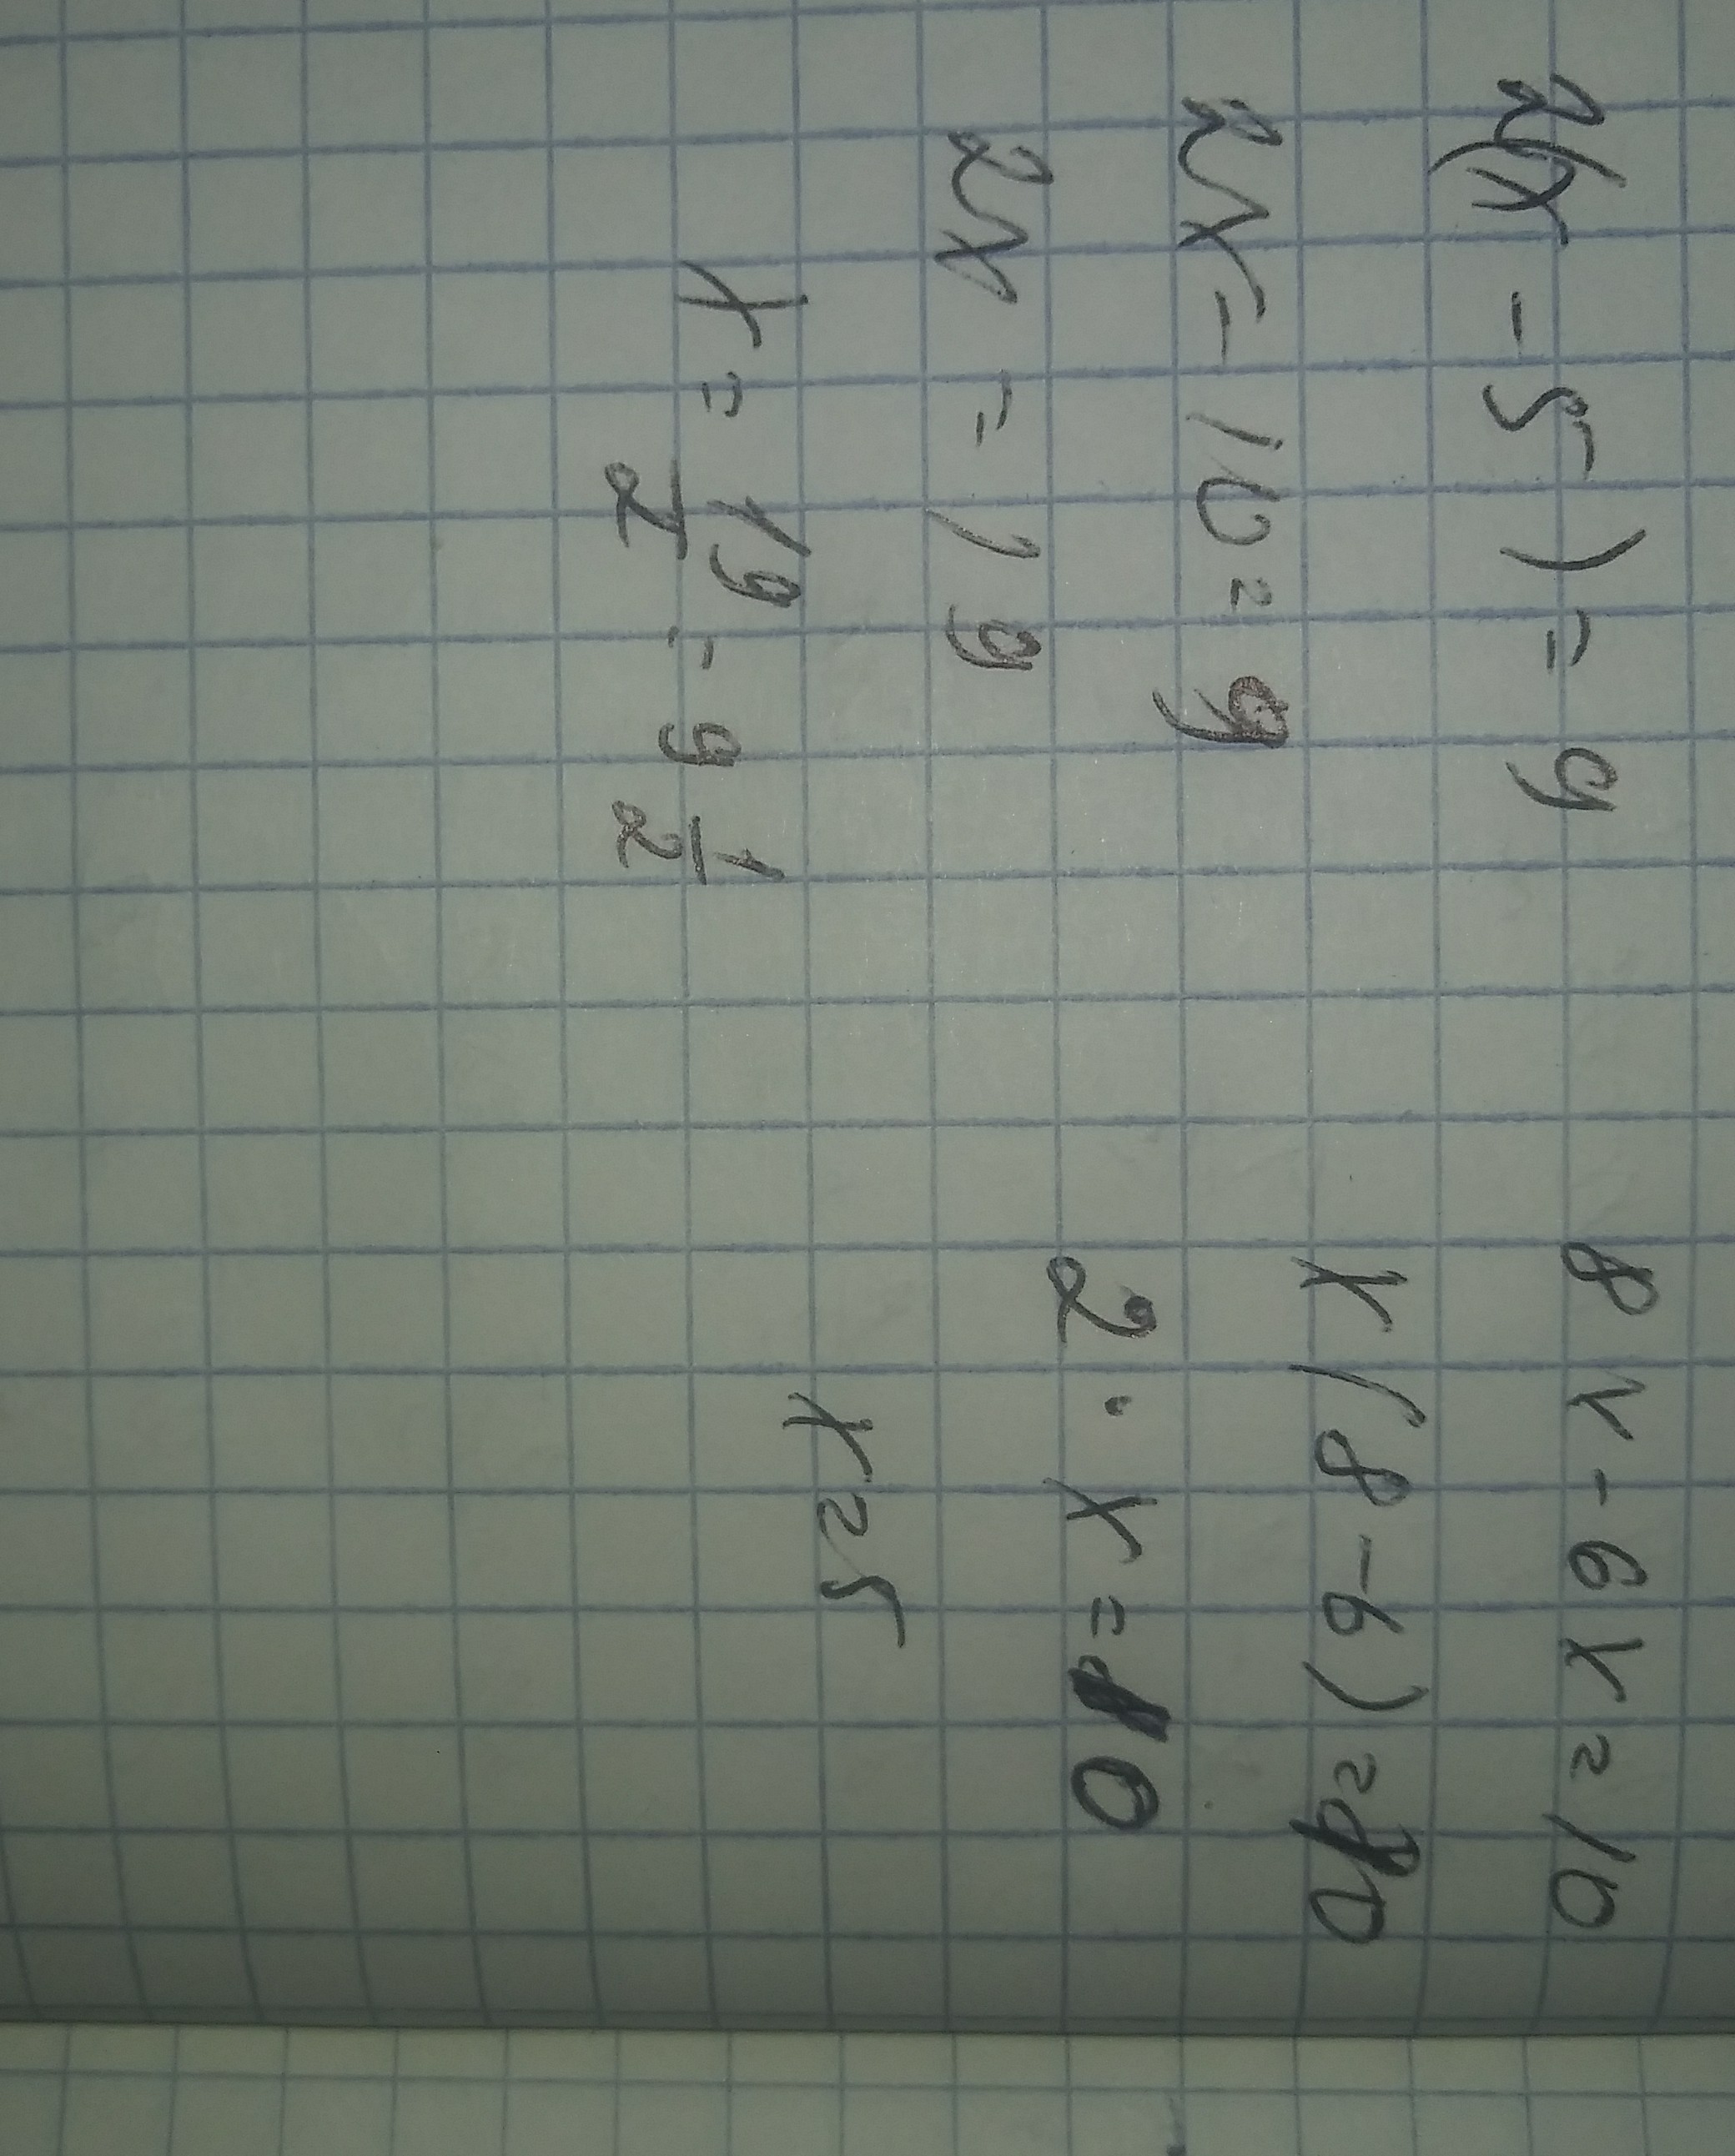 2(x - 5) = 9
2x - 10 = 9
2x = 19
x = 19/2 = 9 1/2
8x - 6x = 10
x(8-6) = 10
2 · x = 10
x = 5